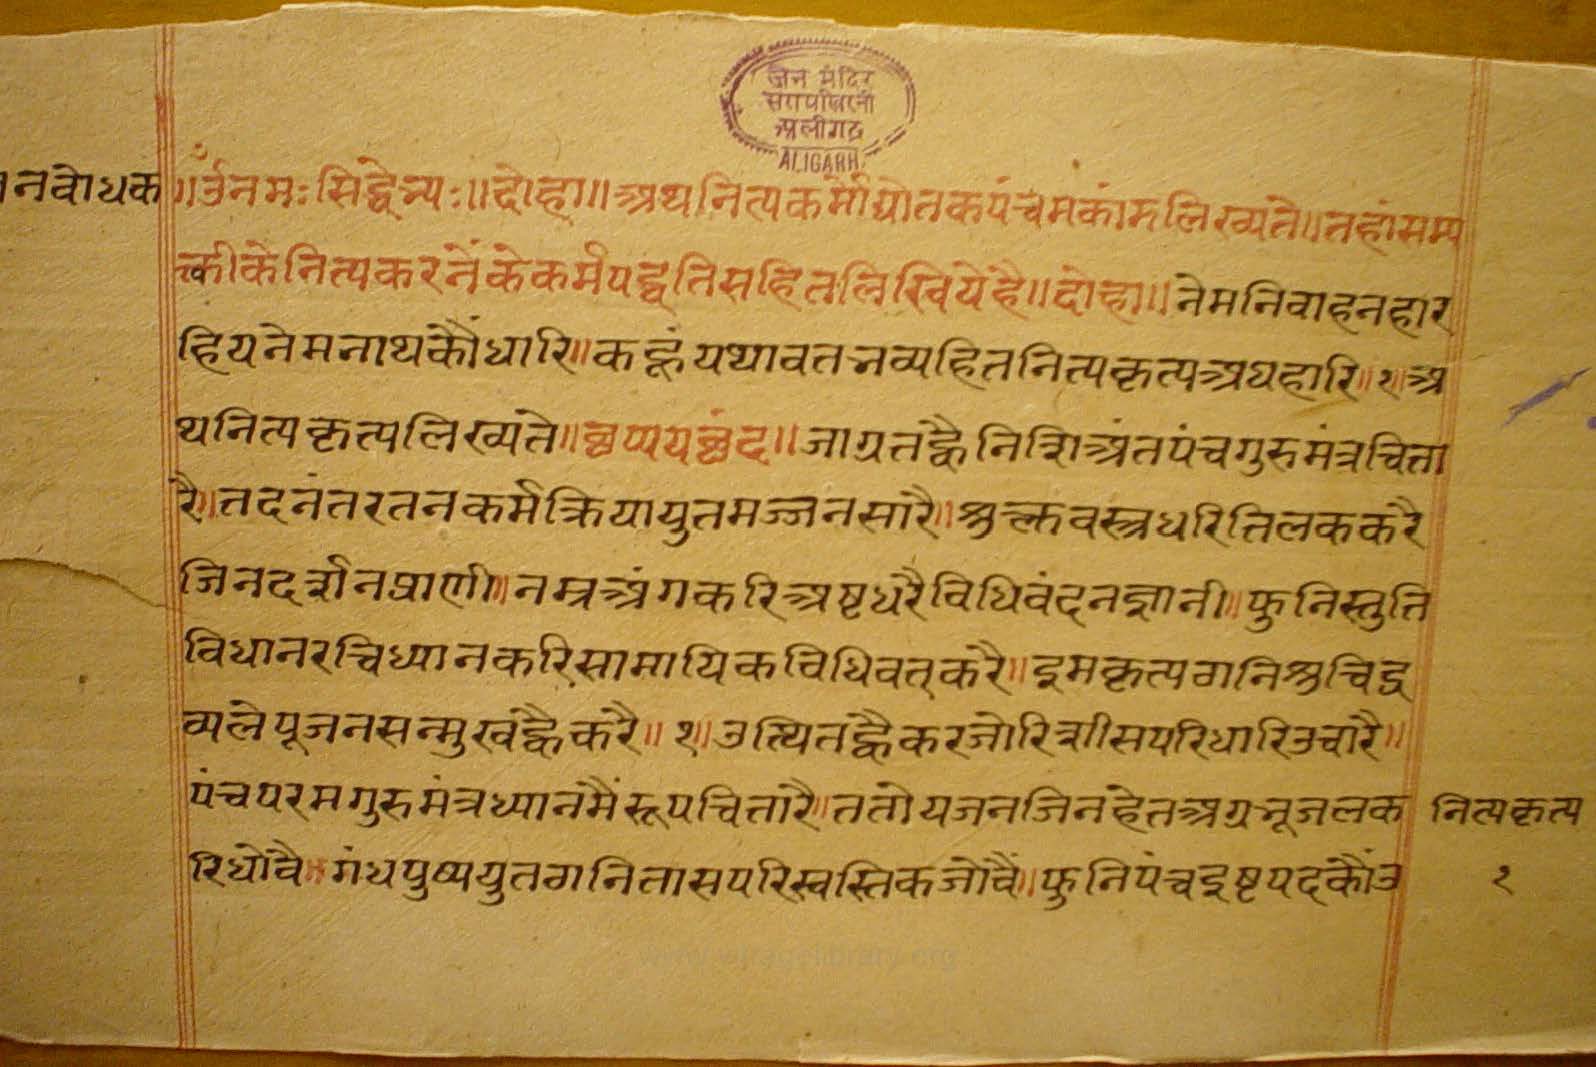 जैन मंदिर
अलीगढ
ALIGARH
नबोधक
॥ॐनमः सिद्धेभ्यः॥दोहा॥अथनित्यकर्मोद्योतकपंचमकांमलिख्यते॥तहांसम्य
क्तीकेनित्यकरनेंकेकर्मपद्धतिसहितलिखियेहै॥दोहा॥नेमनिवाहनहार
हियनेमनाथकौंधारि॥कहूंयथावतभव्यहितनित्यकृत्यअघहारि॥१॥अ
थनित्यकृत्यलिख्यंते॥छप्पयछंद॥जाग्रतह्वैनिशिअंतपंचगुरुमंत्रचिता
रै॥तदनंतरतनकर्मक्रियायुतमज्जनसारै॥शुक्लवस्त्रधरितिलककरै
जिनदर्शनप्राणी॥नम्रअंगकरिअष्टधरैविधिवंदनज्ञानी॥फुनिस्तुति
विधानरचिध्यानकरिसामायिकविधिवत्करै॥इमकृत्यठानिशुचिद्र
व्यलेपूजनसन्मुखह्वैकरै॥१॥उत्थितह्वैकरजोरिशीसपरिधारिउचारै॥
पंचपरमगुरुमंत्रध्यानमैंरूपचितारै॥ततोयजनजिनहेतअग्रभूजलक
रिधोवै॥गंधपुष्पयुतठानितासपरिस्वस्तिकजोवैं॥फुनिपंचइष्टपदकौंउ
नित्यकृत्य
१
www.viragelibrary.org